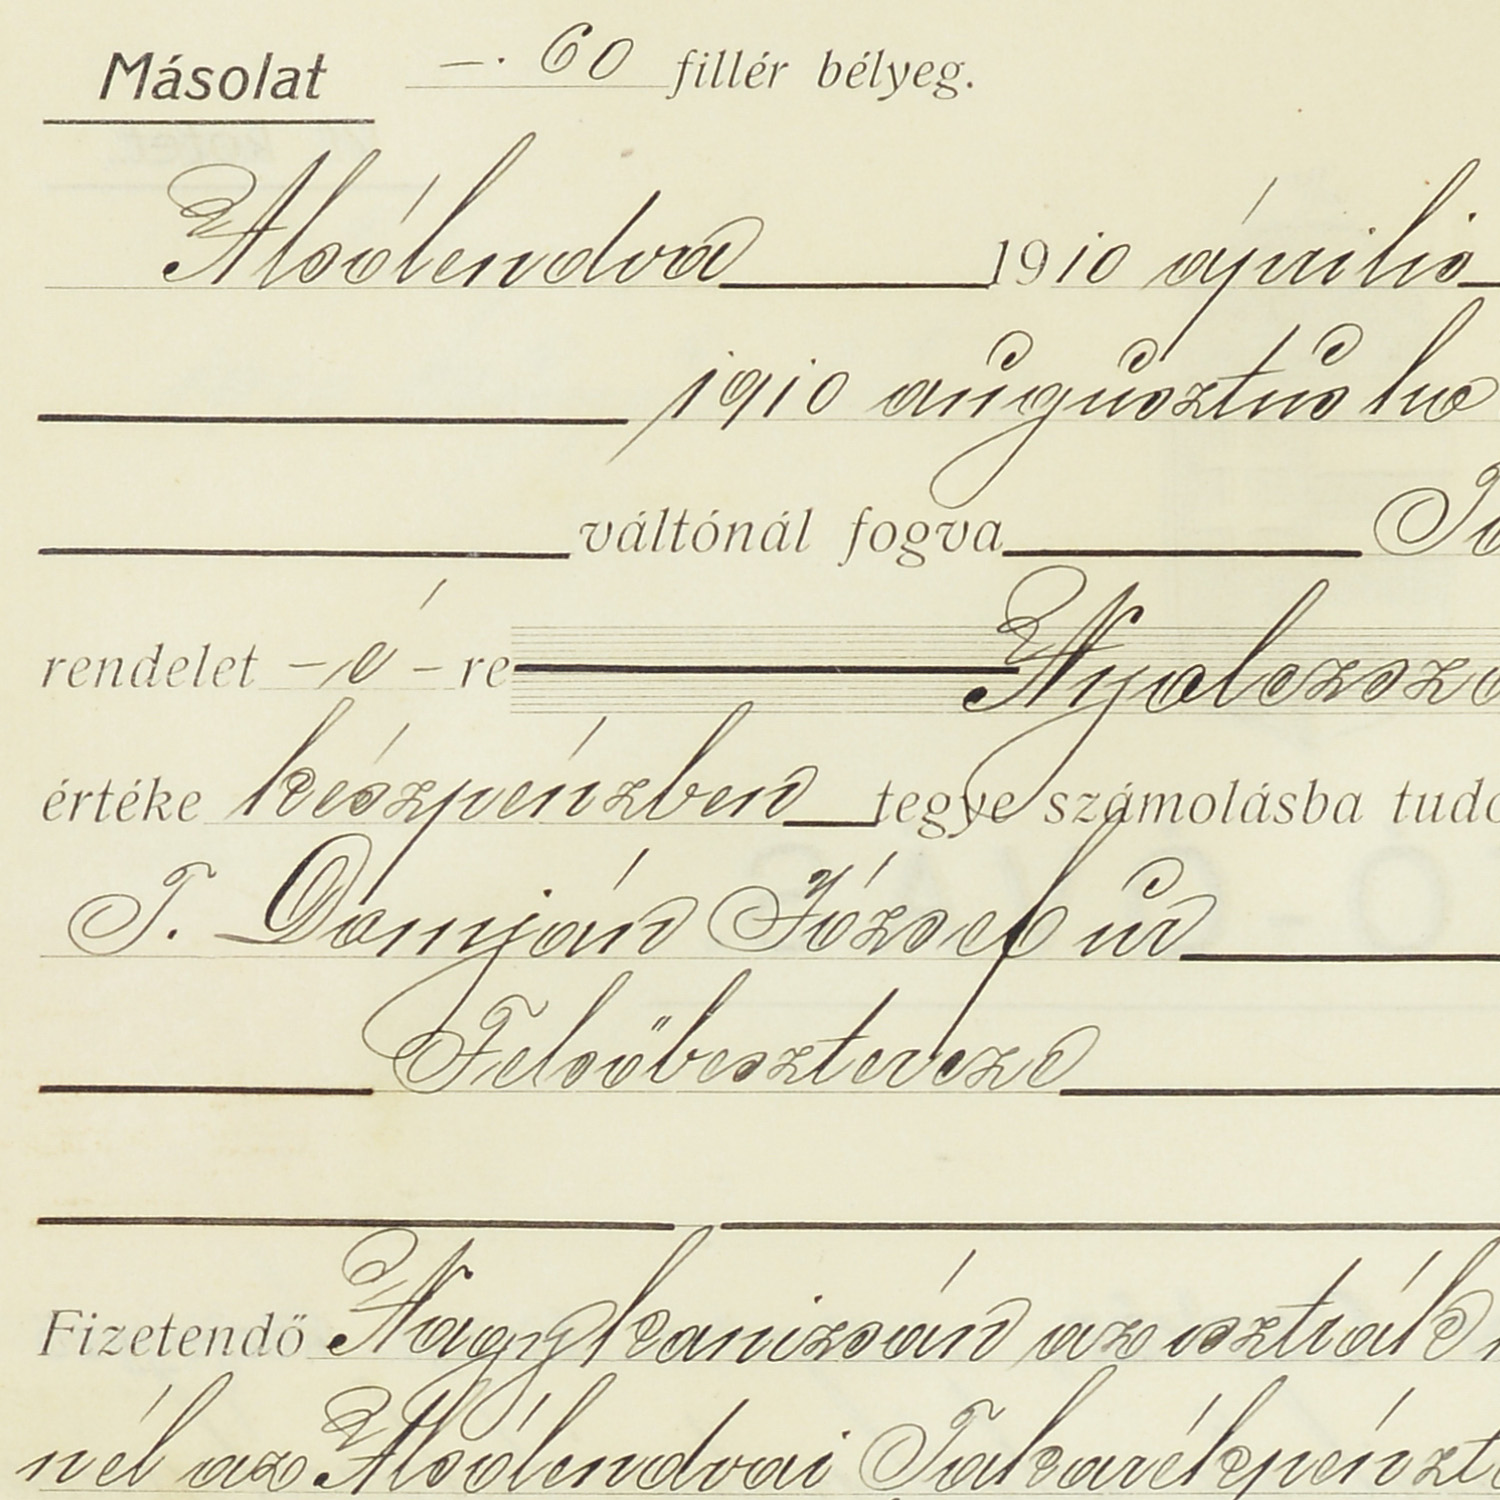 Másolat —. 60 fillér bélyeg.
Alsólendva 1910 április
1910 augusztus hó
váltónál fogva
rendelet – ó – re Nyolczszá
értéke készpénzben tegye számolásba tudó
T. Domján József úr
Felsőbeszterecze
Fizetendő Nagykanizsán az osztrák
nél az Alsólendvai Takarékpénzt